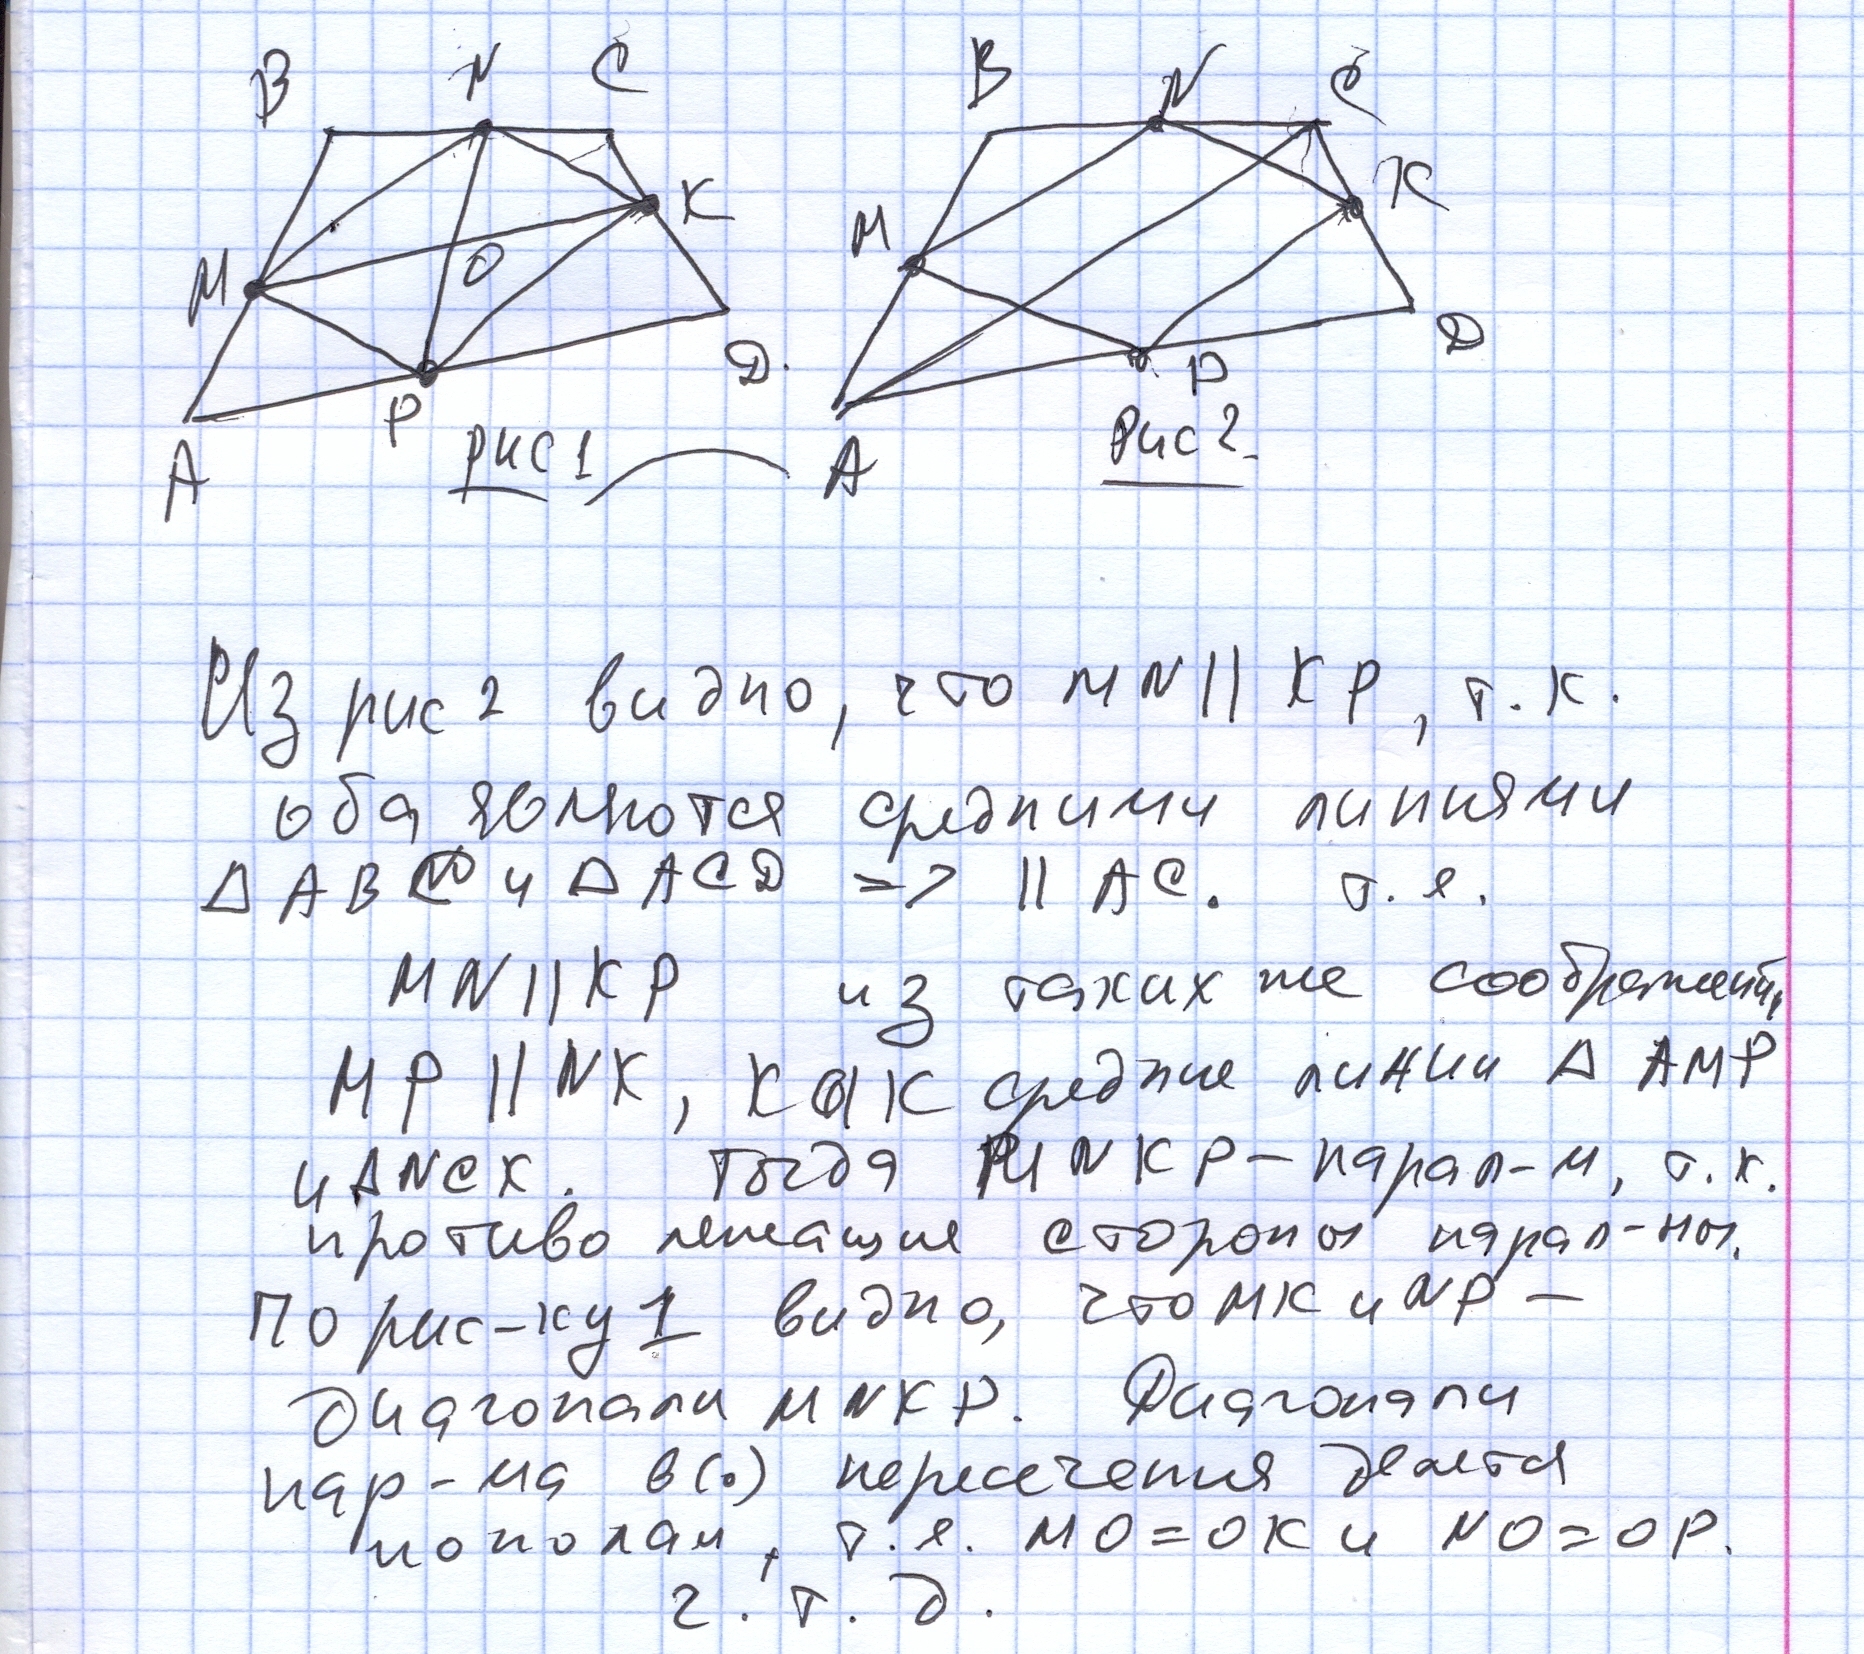 B N C
B N C
M O K
M K
A P D.
A P D
рис 1
Рис 2
Из рис 2 видно, что MN || KP, т.к.
оба являются средними линиями
Δ ABC и Δ ACD => || AC. т.е.
MN || KP из таких же соображений,
MP || NK, как средние линии Δ AMP
и ΔNCK. Тогда MNKP – парал-м, т.к.
противолежащие стороны парал-ны.
По рис-ку 1 видно, что MK и NP –
диагонали MNKP. Диагонали
пар-ма в (.) пересечения делятся
пополам, т.е. MO=OK и NO=OP.
ч.т.д.